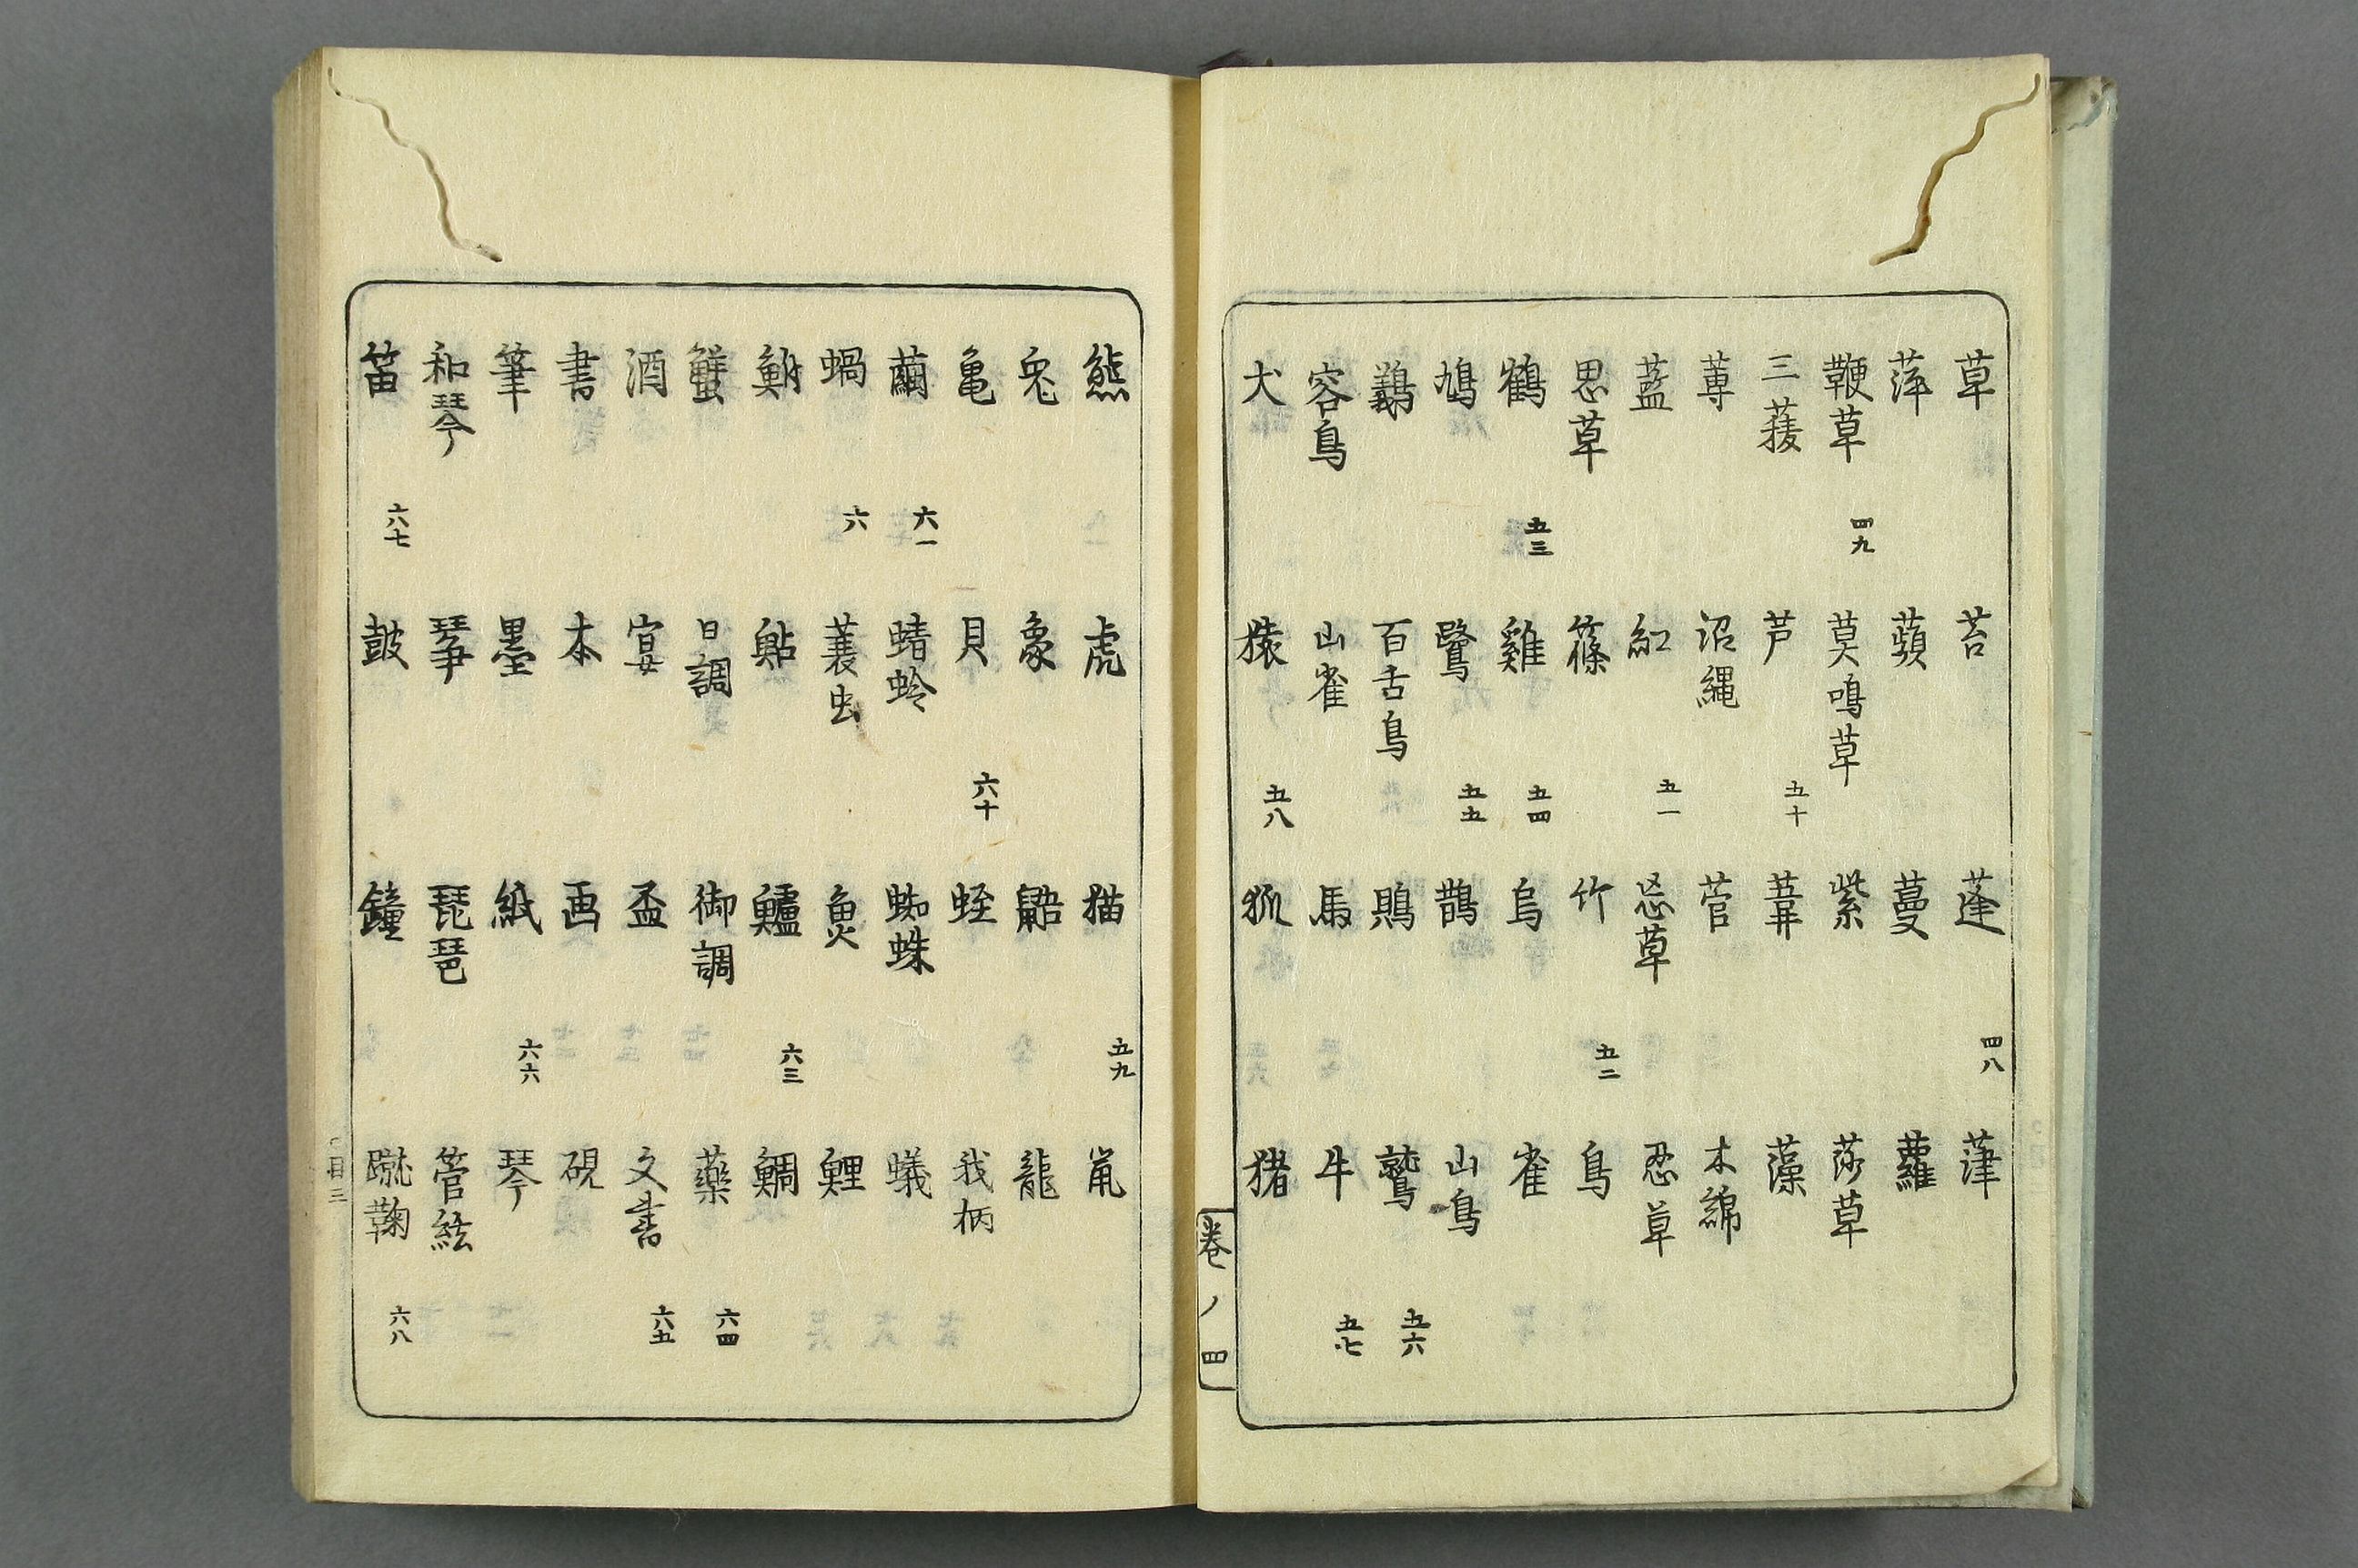 草 苔 蓬 四八 葎
萍 蘋 蔓 蘿
鞭草 四九 莫鳴草 紫 莎草
三 芦 五十 藻
蓴 沼縄 菅 木綿
藍 紅 五一 忘草 忍草
思草 篠 竹 五二 鳥
鶴 五三 雞 五四 烏 雀
鳩 鷺 五五 鵲 山鳥
百舌鳥 鵙 鷲 五六
容鳥 山雀 馬 牛 五七
犬 猿 五八 狐 猪
巻ノ四
熊 虎 猫 五九 鼠
兎 象 鼯 龍
亀 貝 六十 蛭 我柄
繭 六一 蜻蛉 蜘蛛 蟻
蝸 六 蓑虫 魚 鯉
鮎 鱸 六三 鯛
蟹 日調 御調 薬 六四
酒 宴 盃 文書 六五
書 本 画 硯
筆 墨 紙 六六 琴
和琴 箏 琵琶 管絃
笛 六七 鼓 鐘 蹴鞠 六八
目三